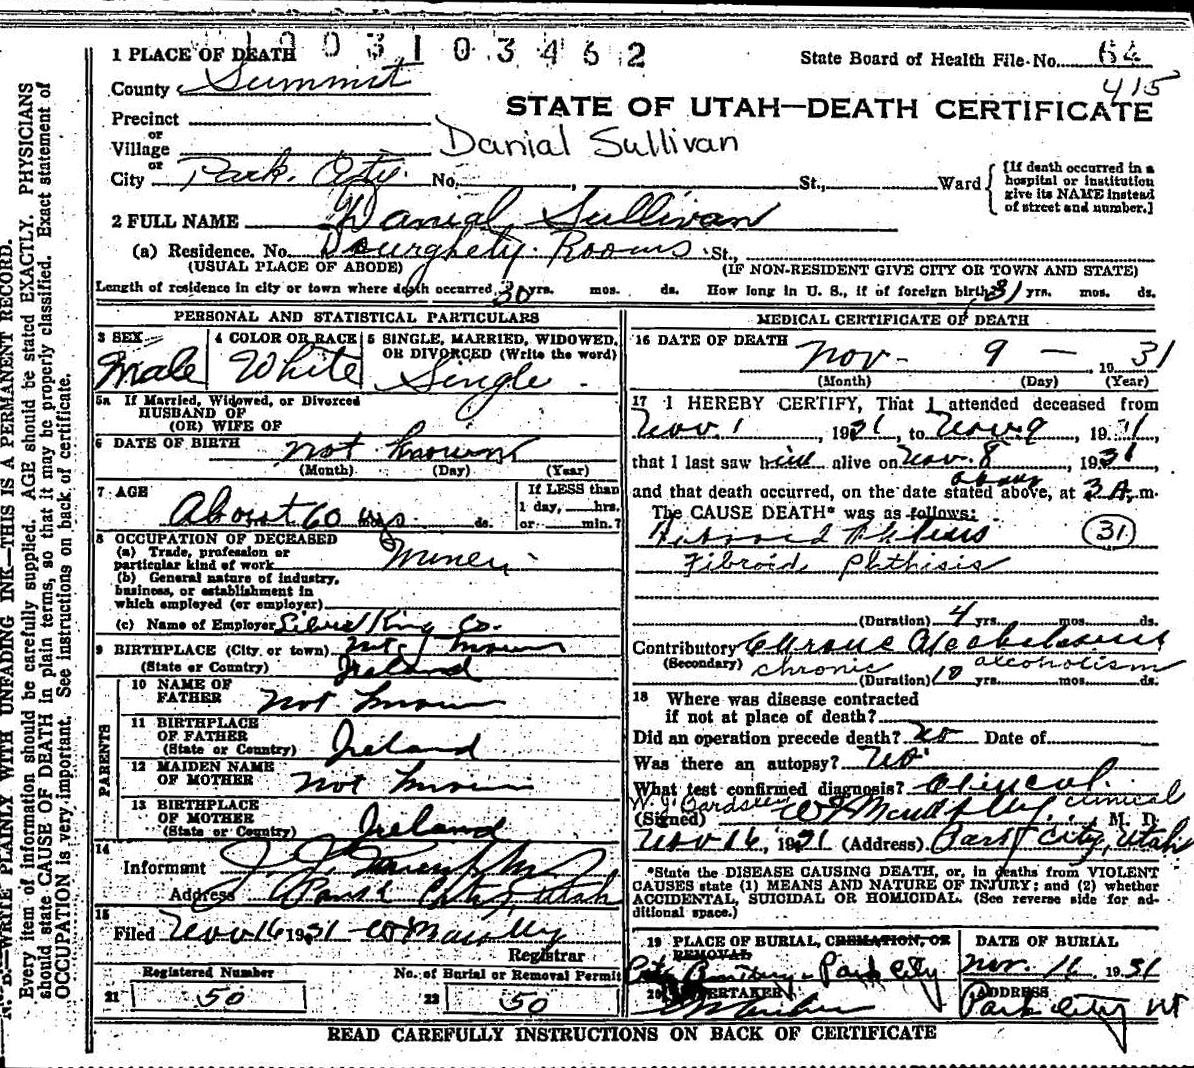 1003103462
1 PLACE OF DEATH
State Board of Health File No. 64
415
County Summit
STATE OF UTAH—DEATH CERTIFICATE
Precinct
or
Village
Danial Sullivan
or
City Park City No. , St., Ward {[If death occurred in a hospital or institution give its NAME instead of street and number.]
2 FULL NAME Danial Sullivan
(a) Residence. No. Dourghety Rooms St.,
(USUAL PLACE OF ABODE) (IF NON-RESIDENT GIVE CITY OR TOWN AND STATE)
Length of residence in city or town where death occurred 30 yrs. mos. ds. How long in U. S., if of foreign birth? 31 yrs. mos. ds.
PERSONAL AND STATISTICAL PARTICULARS
3 SEX Male
4 COLOR OR RACE White
5 SINGLE, MARRIED, WIDOWED, OR DIVORCED (Write the word) Single
5a If Married, Widowed, or Divorced
HUSBAND OF
(OR) WIFE OF
6 DATE OF BIRTH not known
(Month) (Day) (Year)
7 AGE About 60 yrs. mos. ds.
If LESS than
1 day, hrs.
or min.?
8 OCCUPATION OF DECEASED
(a) Trade, profession or
particular kind of work Miner
(b) General nature of industry,
business, or establishment in
which employed (or employer)
(c) Name of Employer Silver King Co.
9 BIRTHPLACE (City or town) not known
(State or Country) Ireland
PARENTS
10 NAME OF
FATHER not known
11 BIRTHPLACE
OF FATHER
(State or Country) Ireland
12 MAIDEN NAME
OF MOTHER not known
13 BIRTHPLACE
OF MOTHER
(State or Country) Ireland
14
Informant J. J.
Address Park City, Utah
15
Filed Nov 16 1931
Registrar
Registered Number
21 50
No. of Burial or Removal Permit
22 50
MEDICAL CERTIFICATE OF DEATH
16 DATE OF DEATH Nov - 9 - 1931
(Month) (Day) (Year)
17 I HEREBY CERTIFY, That I attended deceased from
Nov. 1, 1931, to Nov. 9, 1931,
that I last saw him alive on Nov. 8, 1931,
and that death occurred, on the date stated above, at 3 A. m.
The CAUSE DEATH* was as follows:
Fibroid Phthisis (31)
Fibroid Phthisis
(Duration) 4 yrs. mos. ds.
Contributory Chronic Alcoholism
(Secondary) chronic alcoholism
(Duration) 10 yrs. mos. ds.
18 Where was disease contracted
if not at place of death?
Did an operation precede death? no Date of
Was there an autopsy? no
What test confirmed diagnosis? Clinical
clinical
(Signed) M. D.
Nov 16, 1931 (Address) Park City, Utah
*State the DISEASE CAUSING DEATH, or, in deaths from VIOLENT
CAUSES state (1) MEANS AND NATURE OF INJURY; and (2) whether
ACCIDENTAL, SUICIDAL OR HOMICIDAL. (See reverse side for ad-
ditional space.)
19 PLACE OF BURIAL, CREMATION, OR
REMOVAL
City Cemetery - Park City
DATE OF BURIAL
Nov. 16 1931
20 UNDERTAKER
ADDRESS
Park City Ut
READ CAREFULLY INSTRUCTIONS ON BACK OF CERTIFICATE
N. B.—WRITE PLAINLY WITH UNFADING INK—THIS IS A PERMANENT RECORD.
Every item of information should be carefully supplied. AGE should be stated EXACTLY. PHYSICIANS
should state CAUSE OF DEATH in plain terms, so that it may be properly classified. Exact statement of
OCCUPATION is very important. See instructions on back of certificate.